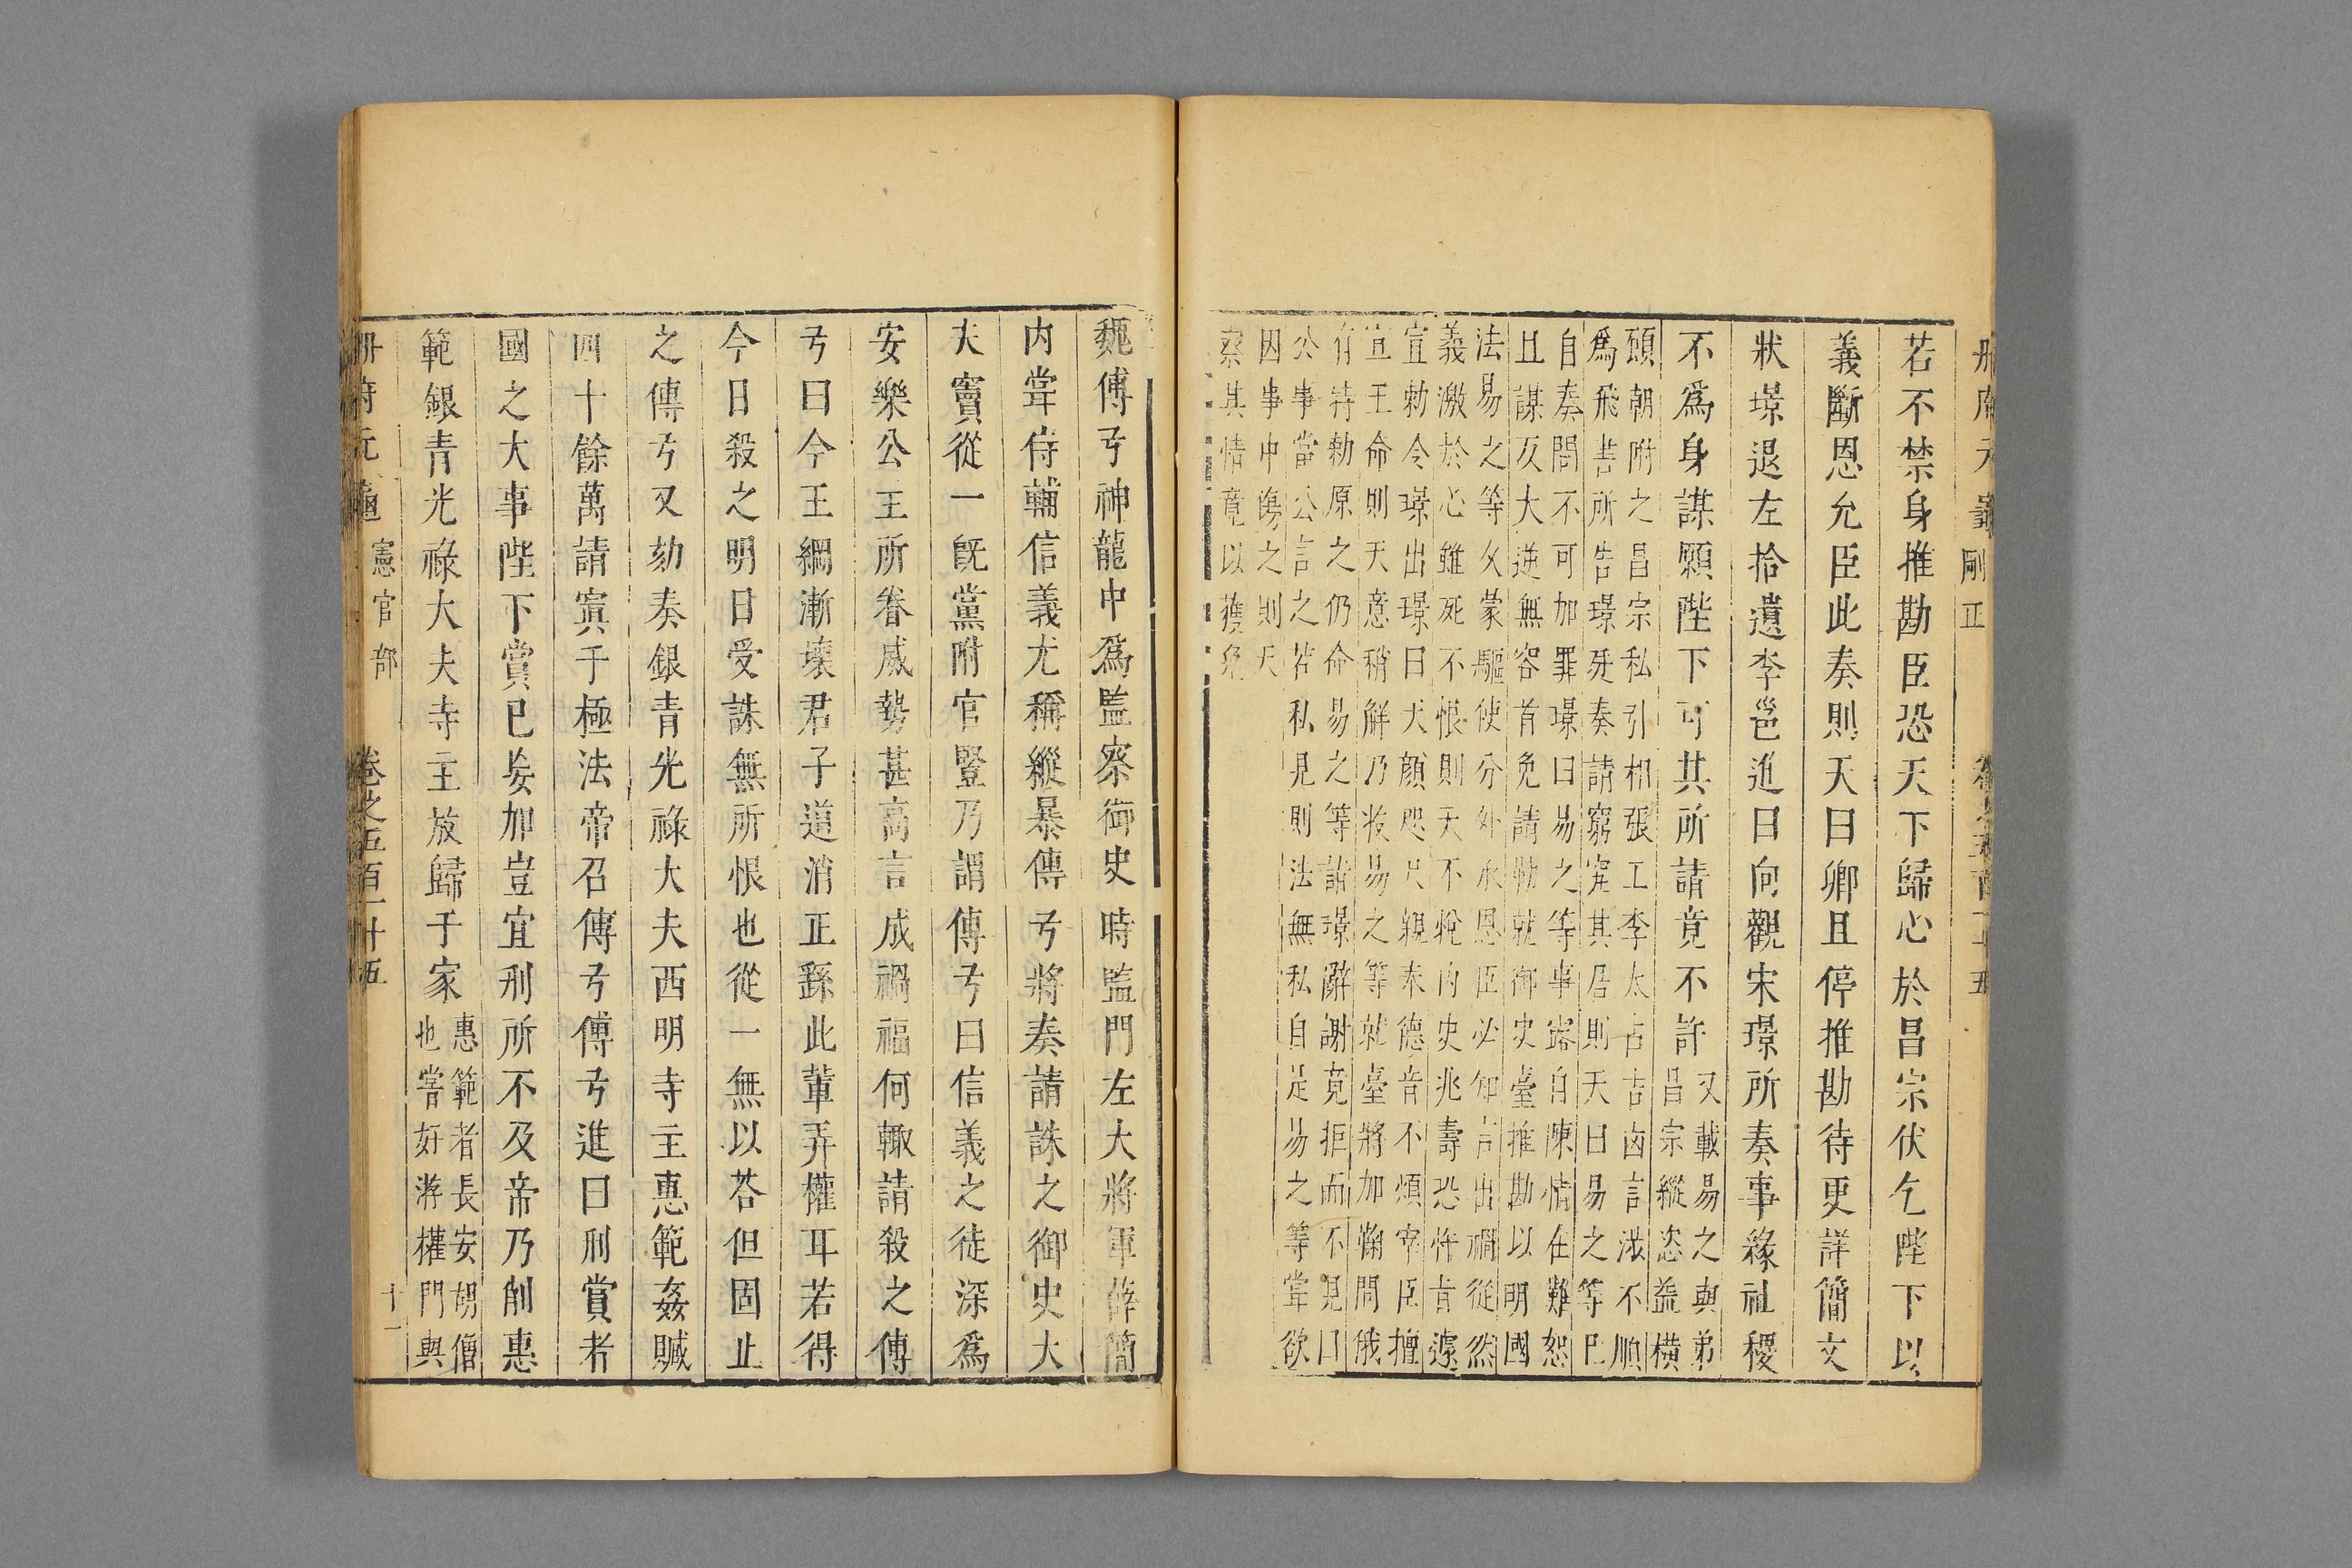 冊府元龜 剛正 卷之五百一十五
若不禁身推勘臣恐天下歸心於昌宗伏乞陛下以
義斷恩允臣此奏則天曰卿且停推勘待更詳簡文
狀璟退左拾遺李邕進曰向觀宋璟所奏事緣社稷
不爲身謀願陛下可其所請竟不許
又載易之與弟
昌宗縱恣益橫
頤朝附之昌宗私引相張工李太占吉凶言涉不順
爲飛書所告璟廷奏請窮究其居則天曰易之等已
自奏聞不可加罪璟曰易之等事露自陳情在難恕
且謀反大逆無容首免請勒就御史臺推勘以明國
法易之等久蒙驅使分外承恩臣必知言出禍從然
義激於心雖死不恨則天不悅內史兆壽恐忤旨遽
宣勅令璟出璟曰天顏咫尺親奉德音不煩宰臣擅
宣王命則天意稍解乃收易之等就臺將加鞫問俄
有特勅原之仍命易之等詣璟辭謝竟拒而不見曰
公事當公言之若私見則法無私自是易之等嘗欲
因事中傷之則天
察其情竟以獲免
魏傳弓神龍中爲監察御史時監門左大將軍薛簡
内嘗侍輔信義尤稱縱暴傳弓將奏請誅之御史大
夫竇從一旣黨附官豎乃謂傳弓曰信義之徒深爲
安樂公主所眷威勢甚高言成禍福何輙請殺之傳
弓曰今王綱漸壞君子道消正繇此輩弄權耳若得
今日殺之明日受誅無所恨也從一無以荅但固止
之傳弓又劾奏銀青光祿大夫西明寺主惠範姦贓
四十餘萬請寘于極法帝召傳弓傳弓進曰刑賞者
國之大事陛下賞已妄加豈宜刑所不及帝乃削惠
範銀青光祿大夫寺主放歸于家
惠範者長安胡僧
也嘗好游權門與
冊府元龜 憲官部 卷之五百一十五 十一